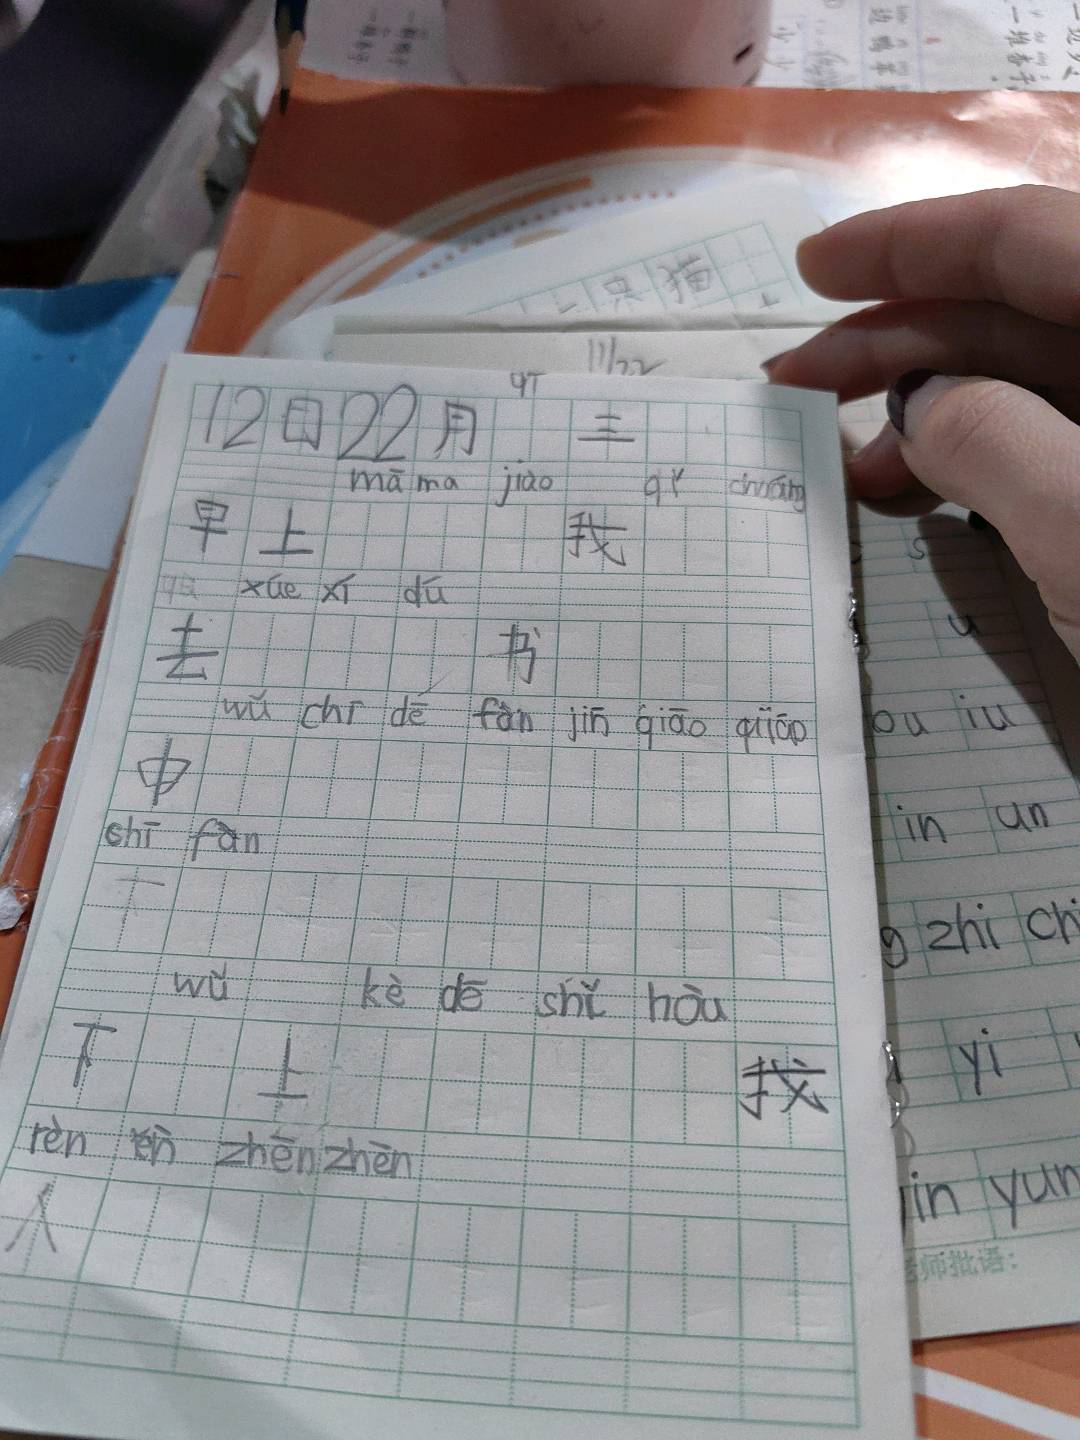 一只猫
11/22
qī
12日22月 三
māma jiào qǐ chuáng
早上 我
qù xúe xí dú
去 书
wǔ chī dē fàn jīn qiāo qiāo
中
chī fàn
下
wǔ kè dē shǐ hòu
下 上 我
rèn zhēn zhēn
人
s
u
ou iu
in un
g zhi chi
yi
in yun
师批语: